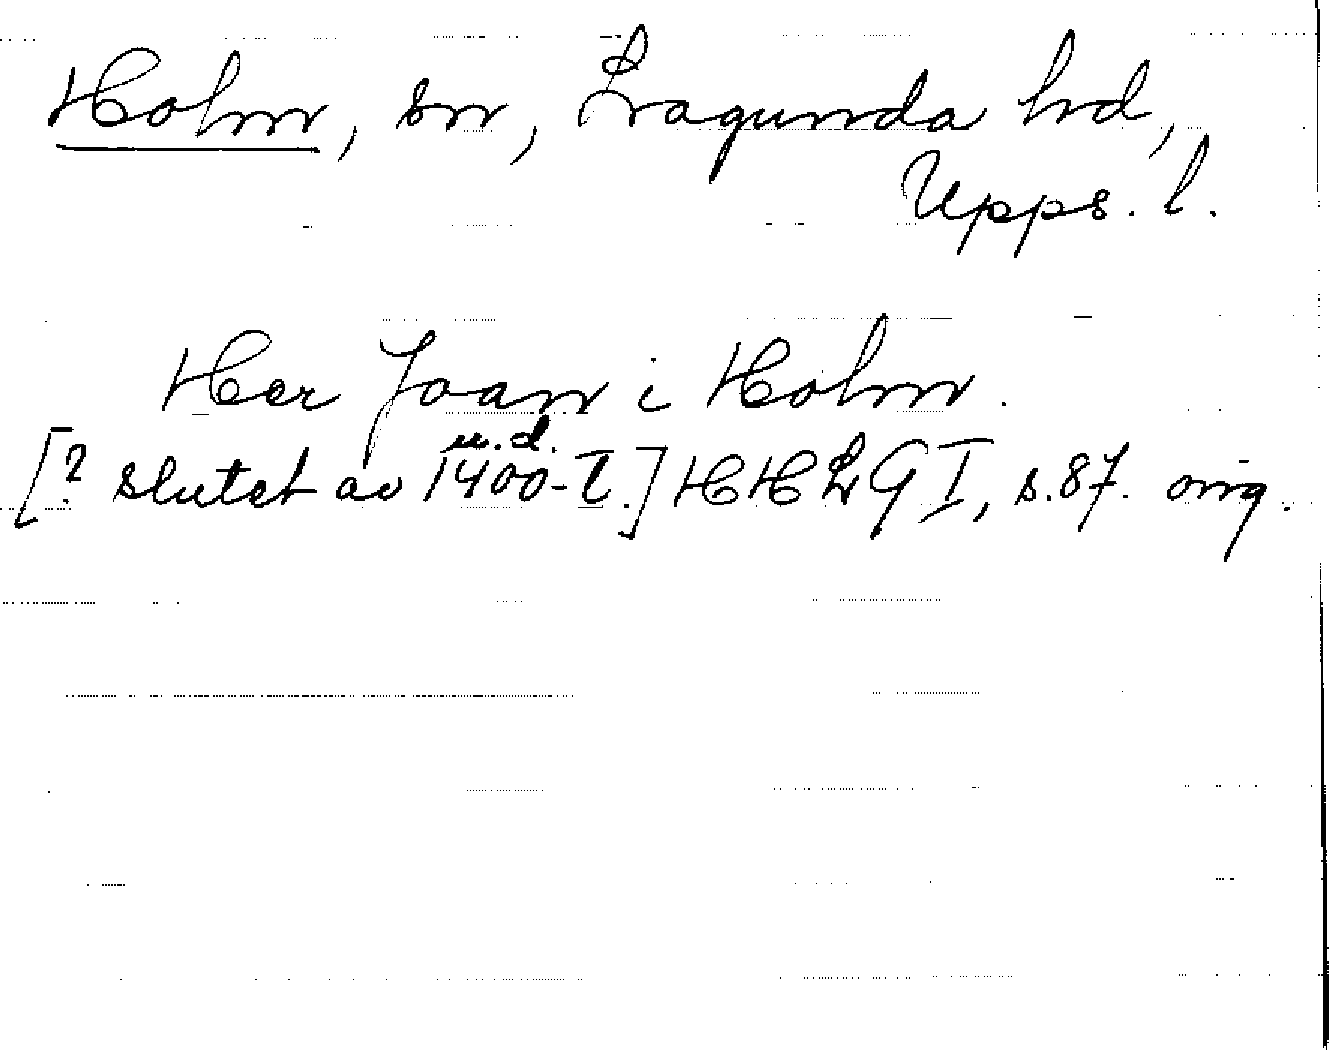 Holm, sn, Lagunda hd,
Upps. l.
Her Joan i Holm.
u.d.
[? slutet av 1400-t.] HHLG I, s.87. orig.